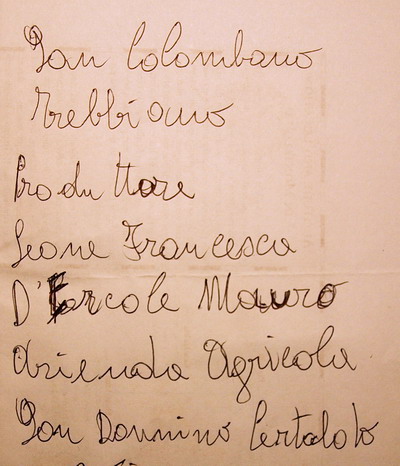 San Colombano
Trebbiano
Produttore
Leone Francesca
D'Ercole Mauro
Azienda Agricola
San Donnino Certaldo